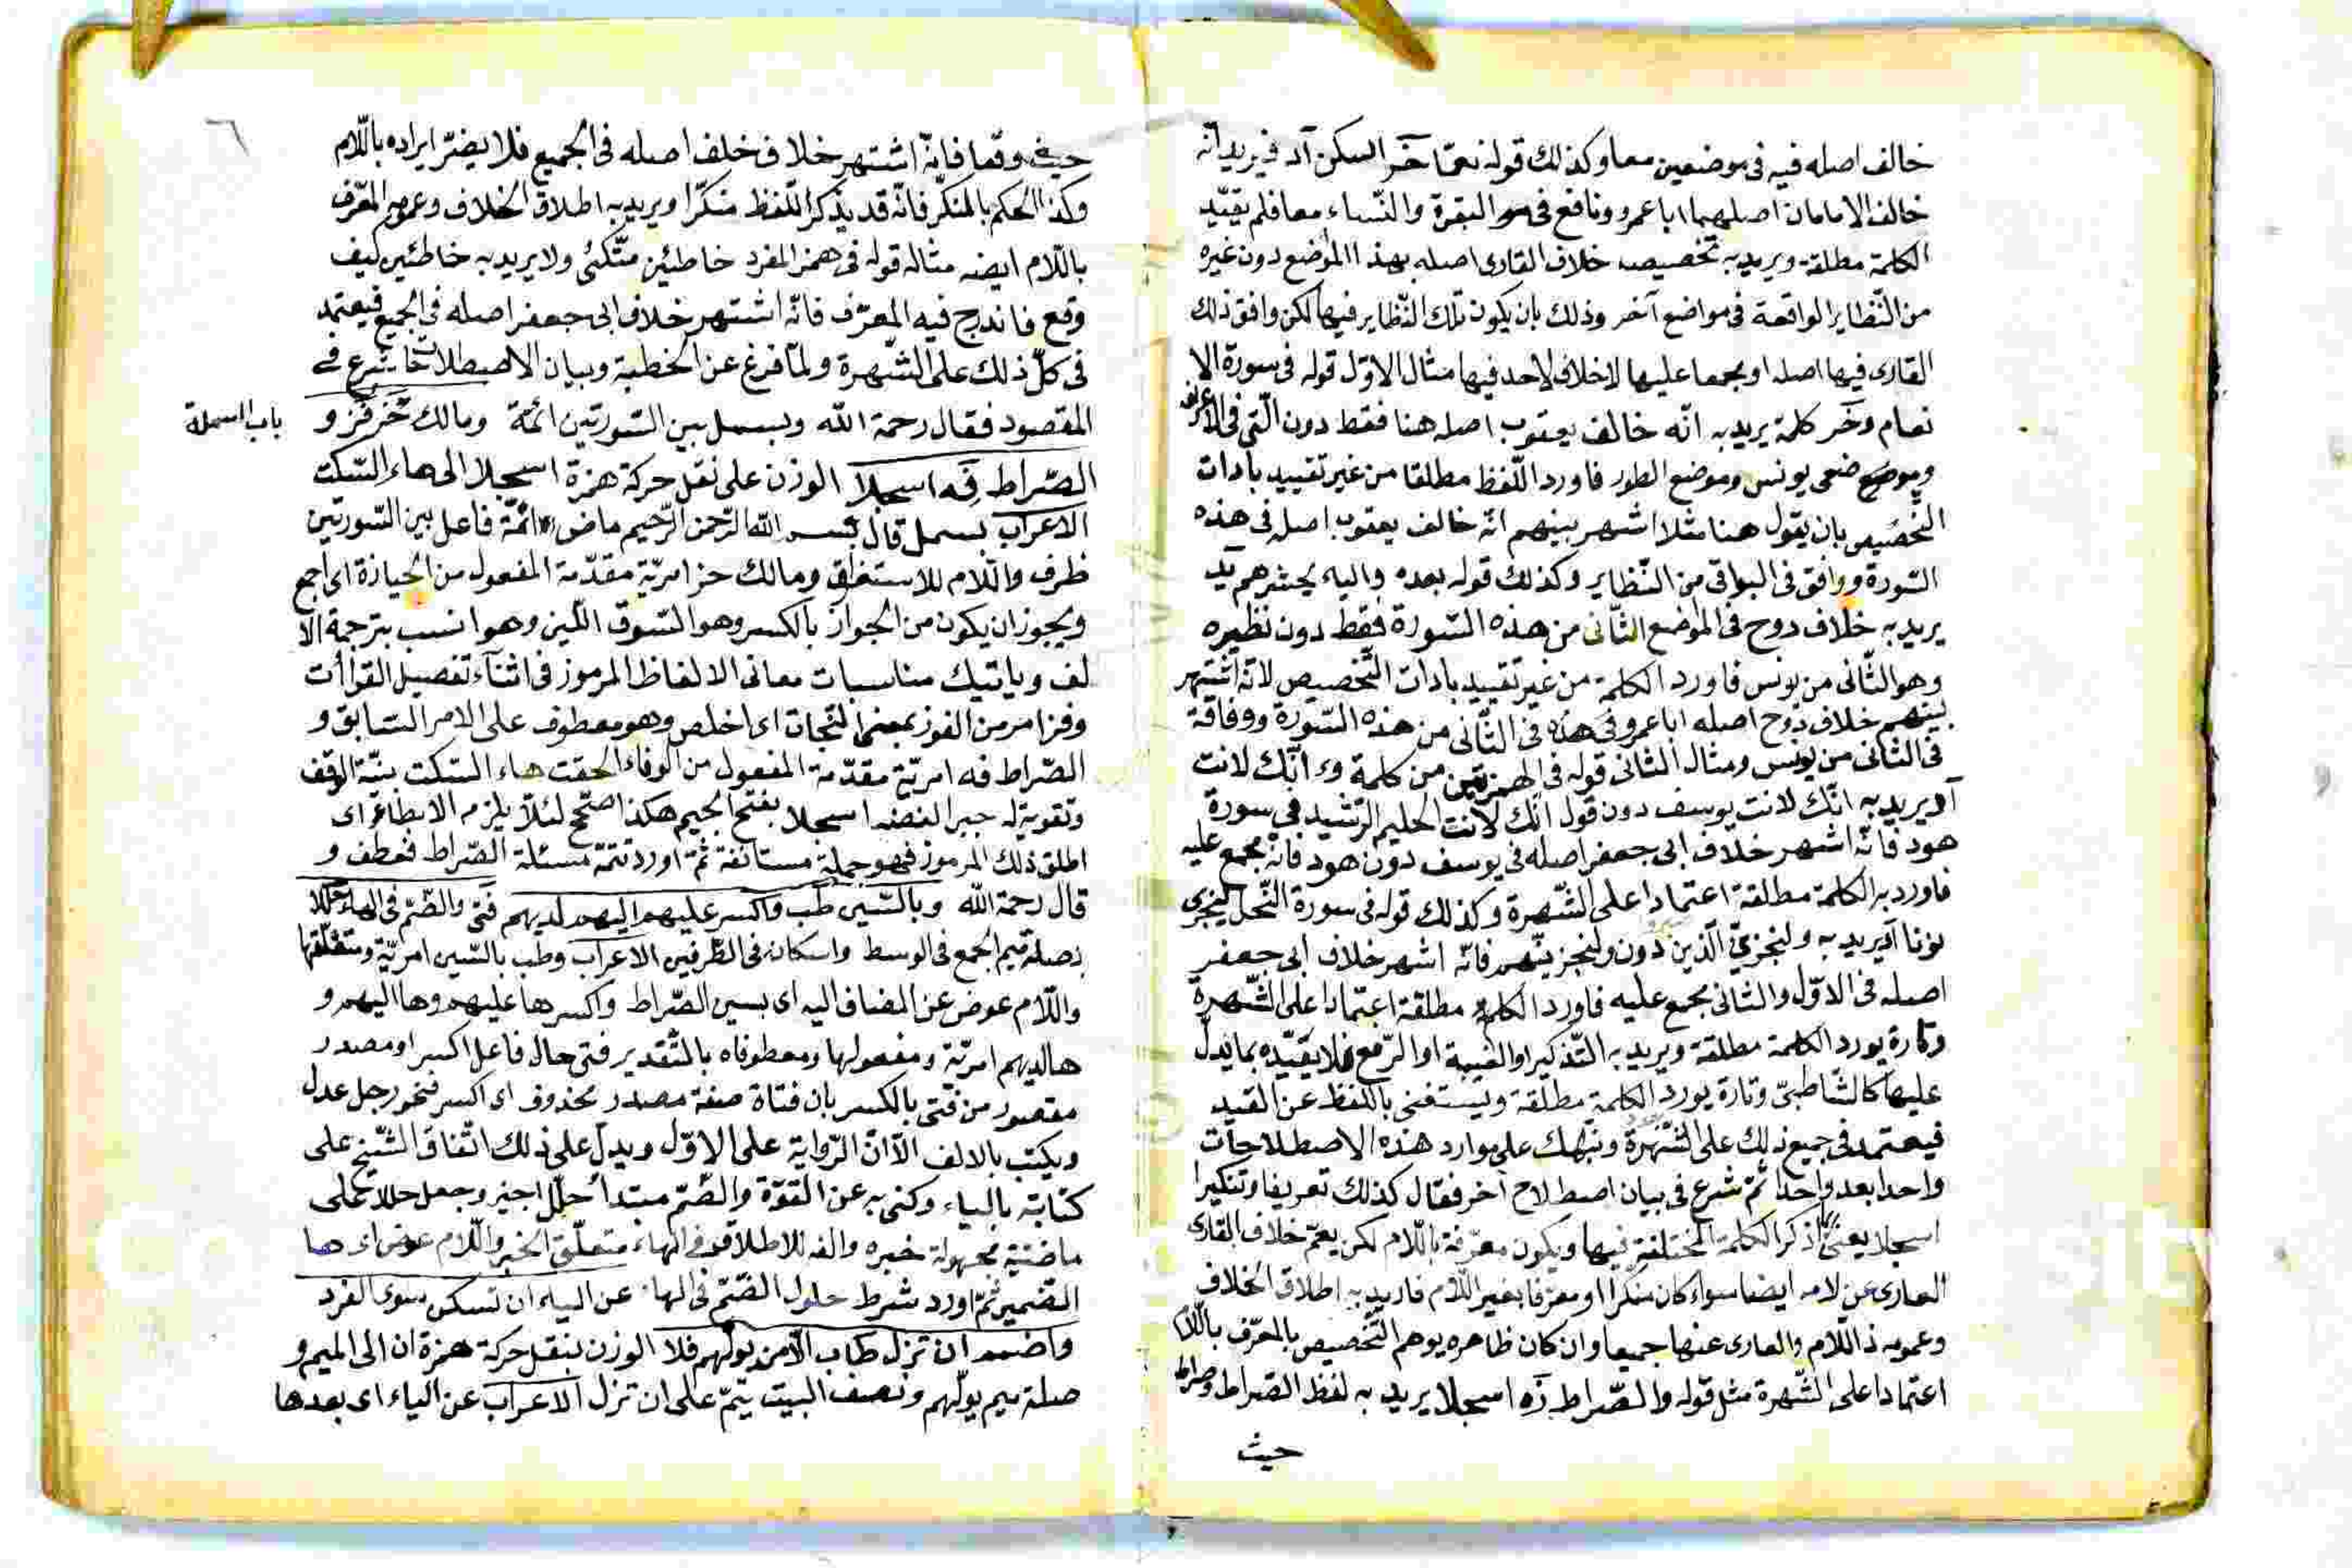 خالف اصله فيه فى موضعين معا وكذلك قوله نعمّا حز اسكن أد فيريد انّه
خالف الامامان اصليهما ابا عمرو ونافع فى البقرة والنّساء معا فلم يقيّد
الكلمة مطلقة ويريد به تخصيص خلاف القارى اصله بهذا الموضع دون غيره
من النّظاير الواقعة فى مواضع آخر وذلك بان يكون تلك النّظاير فيها لكن وافق ذلك
القارى فيها اصله او مجمعا عليها لا خلاف لاحد فيها مثال الاوّل قوله فى سورة الا
نعام وحز كلمة يريد به انّه خالف يعقوب اصله هنا فقط دون الّتى فى الاعراف
وموضعى يونس وموضع الطور فاورد اللّفظ مطلقا من غير تقييد بادات
التّخصيص بان يقول هنا مثلا اشهر بينهم انّه خالف يعقوب اصله فى هذه
السّورة ووافق فى البواقى من النّظاير وكذلك قوله بعده والياء يحشرهم يد
يريد به خلاف روح فى الموضع الثّانى من هذه السّورة فقط دون نظيره
وهو الثّانى من يونس فاورد الكلمة من غير تقييد بادات التّخصيص لانّه اشتهر
بينهم خلاف روح اصله ابا عمرو فى هذه فى الثّانى من هذه السّورة ووفاقه
فى الثّانى من يونس ومثال الثانى قوله فى الهمزتين من كلمة وء انّك لانت
أد يريد به انّك لانت يوسف دون قول انّك لانت الحليم الرّشيد فى سورة
هود فانّه اشهر خلاف ابى جعفر اصله فى يوسف دون هود فانّه مجمع عليه
فاورد به الكلمة مطلقة اعتمادا على الشّهرة وكذلك قوله فى سورة النّحل ليجزى
نونا أد يريد به ولنجزينّ الّذين دون ولنجزينّهم فانّه اشهر خلاف ابى جعفر
اصله فى الاوّل والثانى مجمع عليه فاورد الكلمة مطلقة اعتمادا على الشّهرة
وتارة يورد الكلمة مطلقة ويريد به التّذكير او الغيبة او الرّفع فلا يقيّده بما يدلّ
عليها كالشّاطبىّ وتارة يورد الكلمة مطلقة ويستغنى باللّفظ عن القيد
فيعتمد فى جميع ذلك على الشّهرة وننبّهك على موارد هذه الاصطلاحات
واحدا بعد واحد ثمّ شرع فى بيان اصطلاح آخر فقال كذلك تعريفا وتنكيرا
اسجلا يعنى اذكر الكلمة المختلفة فيها ويكون معرّفة باللّام لكن يعمّ خلاف القارى
العارى عن لامه ايضا سواء كان منكّرا او معرّفا بغير اللّام فاريد به اطلاق الخلاف
وعمومه ذا اللّام والعارى عنها جميعا وان كان ظاهره يوهم التّخصيص بالمعرّف باللّام
اعتمادا على الشّهرة مثل قوله والصّراط فه اسجلا يريد به لفظ الصّراط وصراط
حيث
٦
حيث وقعا فانّه اشتهر خلاف خلف اصله فى الجميع فلا يضرّ ايراده باللّام
وكذا الحكم بالمنكّر فانّه قد يذكر اللّفظ منكّرا ويريد به اطلاق الخلاف وعموم المعرّف
باللّام ايضا مثاله قوله فى همز المفرد خاطئين متّكئى ولا يريد به خاطئين كيف
وقع فاندرج فيه المعرّف فانّه اشتهر خلاف ابى جعفر اصله فى الجميع فيعتمد
فى كلّ ذلك على الشّهرة ولمّا فرغ عن الخطبة وبيان الاصطلاحات شرع فى
المقصود فقال رحمة الله وبسمل بين السّورتين ائمّة ومالك حز فز و
باب البسملة
الصّراط فه اسجلا الوزن على نقل حركة همزة اسجلا الى هاء السّكت
الاعراب بسمل قال بسم الله الرّحمن الرّحيم ماض ائمّة فاعل بين السّورتين
ظرف واللّام للاستغراق ومالك حز امريّة مقدّمة المفعول من الحيازة اى اجمع
ويجوز ان يكون من الحواز بالكسر وهو السّوق اللّين وهو انسب بترجمة الا
لف وياتيك مناسبات معانى الالفاظ المرموز فى اثناء تفصيل القراآت
وفز امر من الفوز بمعنى النّجاة اى اخلص وهو معطوف على الامر السّابق و
الصّراط فه امريّة مقدّمة المفعول من الوفاء الحقت هاء السّكت بنيّة الوقف
وتقوية له جبرا لنقصه اسجلا بفتح الجيم هكذا صحّ لئلّا يلزم الايطاء اى
اطلق ذلك المرموز فهو جملة مستانفة ثمّ اورد تتمّة مسئلة الصّراط فعطف و
قال رحمة الله وبالسّين طب واكسر عليهم اليهم لديهم فتى والضّم فى الهاء حلّلا
بصلة ميم الجمع فى الوسط واسكانه فى الطّرفين الاعراب وطب بالسّين امريّة ومتعلّقها
واللّام عوض عن المضاف اليه اى بسين الصّراط واكسر ها عليهم وها اليهم و
ها لديهم امريّة ومفعولها ومعطوفاه بالتّقدير فتى حال فاعل اكسر او مصدر
مقصور من فتى بالكسر بان فتاة صفة مصدر محذوف اى اكسر فنحو رجل عدل
ويكتب بالالف الّا انّ الرّواية على الاوّل ويدلّ على ذلك اتّفاق الشّيخ على
كتابته بالياء وكنى به عن القوّة والضّم مبتدأ حلّل اجيز وجعل حلالا على
ماضيّة مجهولة خبره والفه للاطلاق وفى الهاء متعلّق الخبر واللّام عوض اى ها
الضّمير ثمّ اورد شرط حلول الضّم فى الهاء عن الياء ان تسكن سوى الفرد
واضمم ان تزل طاب الّا من يولّهم فلا الوزن بنقل حركة همزة ان الى الميم و
صلة ميم يولّهم ونصف البيت يتمّ على ان تزل الاعراب عن الياء اى بعدها